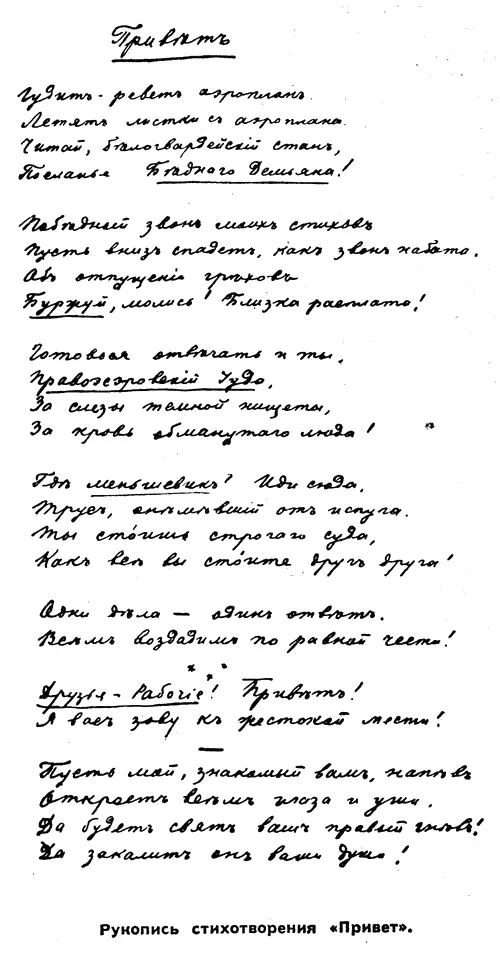 Привѣтъ
Гудитъ-реветъ аэропланъ.
Летятъ листки съ аэроплана.
Читай, бѣлогвардейскій станъ,
Посланье Бѣднаго Демьяна!
Побѣдный звонъ моихъ стиховъ
Пусть внизъ спадетъ, какъ звонъ набата.
Объ отпущеніи грѣховъ
Буржуй, молись! Близка расплата!
Готовься отвѣчать и ты,
Правоэсэровскій Іуда,
За слезы темной нищеты,
За кровь обманутаго люда!
Гдѣ меньшевикъ? Иди сюда,
Трусъ, онѣмѣвшій отъ испуга.
Ты сто́ишь строгаго суда,
Какъ всѣ вы сто́ите другъ друга!
Одни дѣла — одинъ отвѣтъ.
Всѣмъ воздадимъ по равной чести!
* * *
Друзья-Рабочіе! Привѣтъ!
Я васъ зову къ жестокой мести!
—
Пусть мой, знакомый вамъ, напѣвъ
Откроетъ всѣмъ глаза и уши.
Да будетъ святъ вашъ правый гнѣвъ!
Да закалитъ онъ ваши души!
Рукопись стихотворения «Привет».